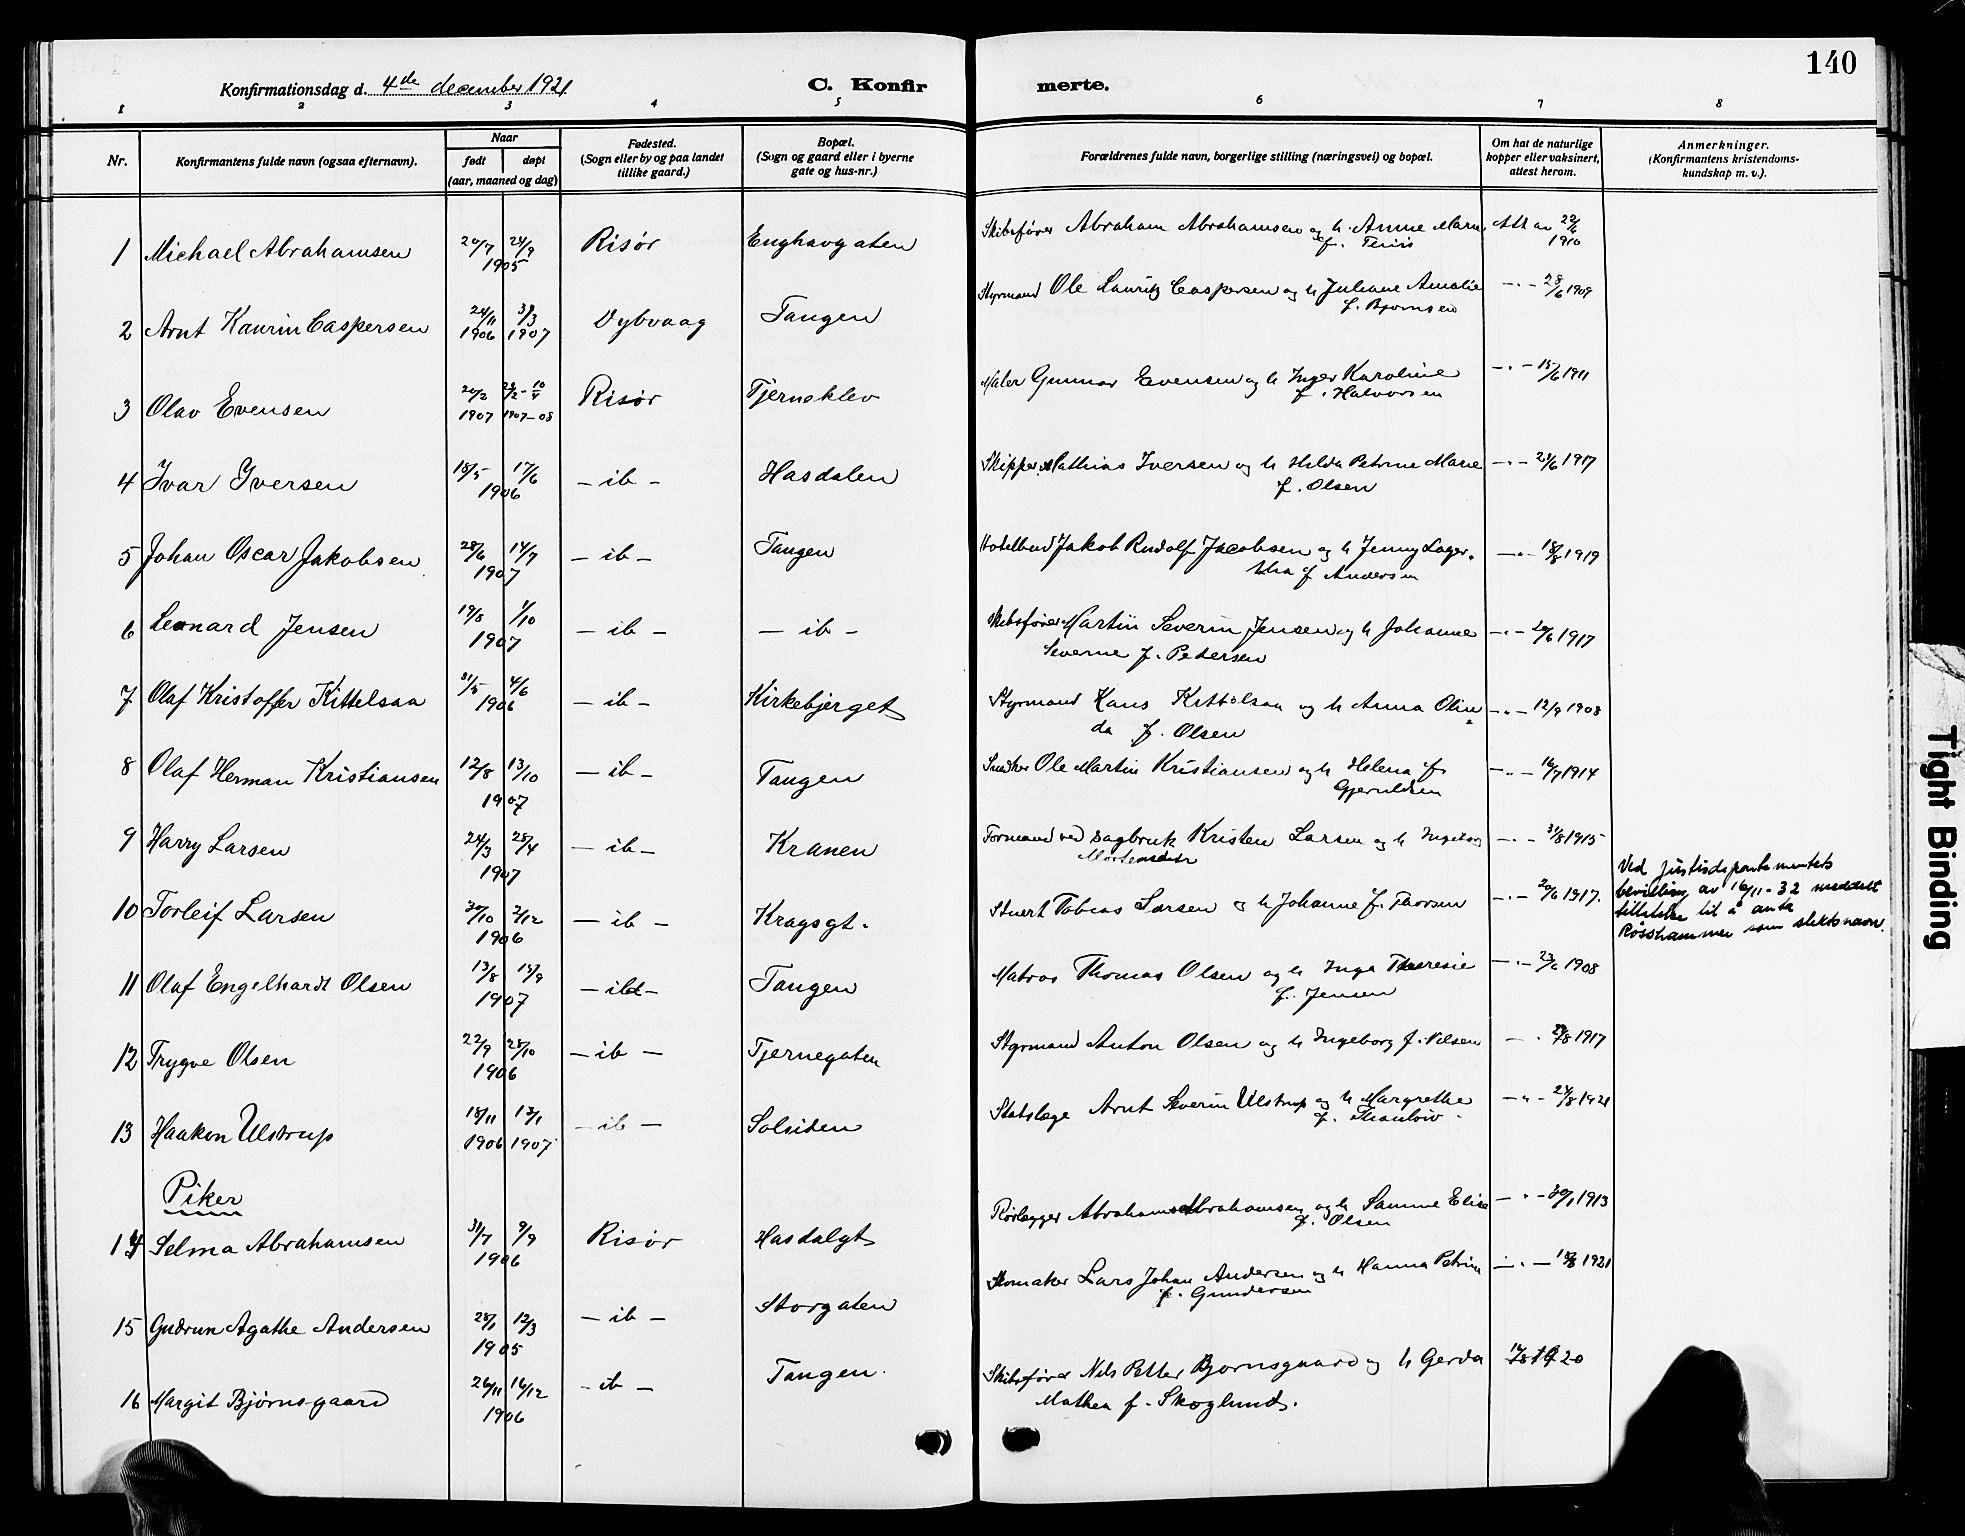 140
Konfirmationsdag d. 4de december 1921
C. Konfirmerte.
1 2 3 4 5 6 7 8
Nr.
Konfirmantens fulde navn (ogsaa efternavn).
Naar
født døpt
(aar, maaned og dag)
Fødested.
(Sogn eller by og paa landet
tillike gaard.)
Bopæl.
(Sogn og gaard eller i byerne
gate og hus-nr.)
Forældrenes fulde navn, borgerlige stilling (næringsvei) og bopæl.
Om hat de naturlige
kopper eller vaksinert,
attest herom.
Anmerkninger.
(Konfirmantens kristendoms-
kundskap m. v.).
1 Michael Abrahamsen 20/7 24/9 1905 Risør Enghavgaten Skibsfører Abraham Abrahamsen og h. Anne Marie
f. Att av 22/6 1910
2 Arnt Kaurin Caspersen 24/11 1906 3/3 1907 Dybvaag Tangen Styrmand Ole Lauritz Caspersen og h Juliane Amalie
f. Bjørnsen – " – 28/6 1909
3 Olav Evensen 20/2 1907 1907–08 Risør Tjerneklev Maler Gunnar Evensen og h Inger Karoline
f. Halvorsen – " – 15/6 1911
4 Ivar Iversen 15/5 17/6 1906 – ib – Hasdalen Skipper Mathias Iversen og h Helda Petrine Marie
f. Olsen – " – 21/6 1917
5 Johan Oscar Jakobsen 28/6 14/7 1907 – ib – Tangen Hotelbud Jakob Rudolf Jacobsen og h Jenny Lager-
tha f Andersen – " – 18/8 1919
6 Leonard Jensen 19/8 1/10 1907 – ib – – ib – Skibsfører Martin Severin Jensen og h Johanne
Severine f. Pedersen – " – 20/6 1917
7 Olaf Kristoffer Kittelsaa 31/5 4/6 1906 – ib – Kirkebjerget Styrmand Hans Kittelsaa og h Anna Olin-
da f. Olsen – " – 12/9 1908
8 Olaf Herman Kristiansen 12/8 13/10 1907 – ib – Tangen Snedker Ole Martin Kristiansen og h Helena f.
Gjeruldsen – " – 16/7 1914
9 Harry Larsen 24/3 28/4 1907 – ib – Kranen Formand ved sagbruk Kristen Larsen og h Ingeborg
– " – 31/8 1915
10 Torleif Larsen 30/10 2/12 1906 – ib – Kragsgt. Stuert Tobias Larsen og h Johanne f. Thorsen – " – 20/6 1917.
Ved justisdepartementets
bevilling av 16/11-32 meddelt
tillatelse til å anta
Røsshammer som slektsnavn.
11 Olaf Engelhardt Olsen 13/8 15/9 1907 – ib – Tangen Matros Thomas Olsen og h Inga Theresie
f. Jensen – " – 23/6 1908
12 Trygve Olsen 22/9 28/10 1906 – ib – Tjernegaten Styrmand Anton Olsen og h Ingeborg f. Nilsen – " 1917
13 Haakon Ulstrup 18/11 1906 13/1 1907 – ib – Solsiden Statslæge Arnt Severin Ulstrup og h Margrethe
f. Thaulow – " – 24/8 1921
Piker
14 Selma Abrahamsen 31/7 9/9 1906 Risør Hasdalgt Rørlægger Abraham Abrahamsen og h Samme Elise
f. Olsen – " – 30/1 1913
15 Gudrun Agathe Andersen 28/1 12/3 1905 – ib – Storgaten Skomaker Lars Johan Andersen og h Hanna Petrine
f. Gundersen – " – 18/8 1921
16 Margit Bjørnsgaard 26/11 16/12 1906 – ib – Tangen. Skibsfører Nils Petter Bjørnsgaard og h Gerda
Mathea f. Skoglund. 1920
Tight Binding